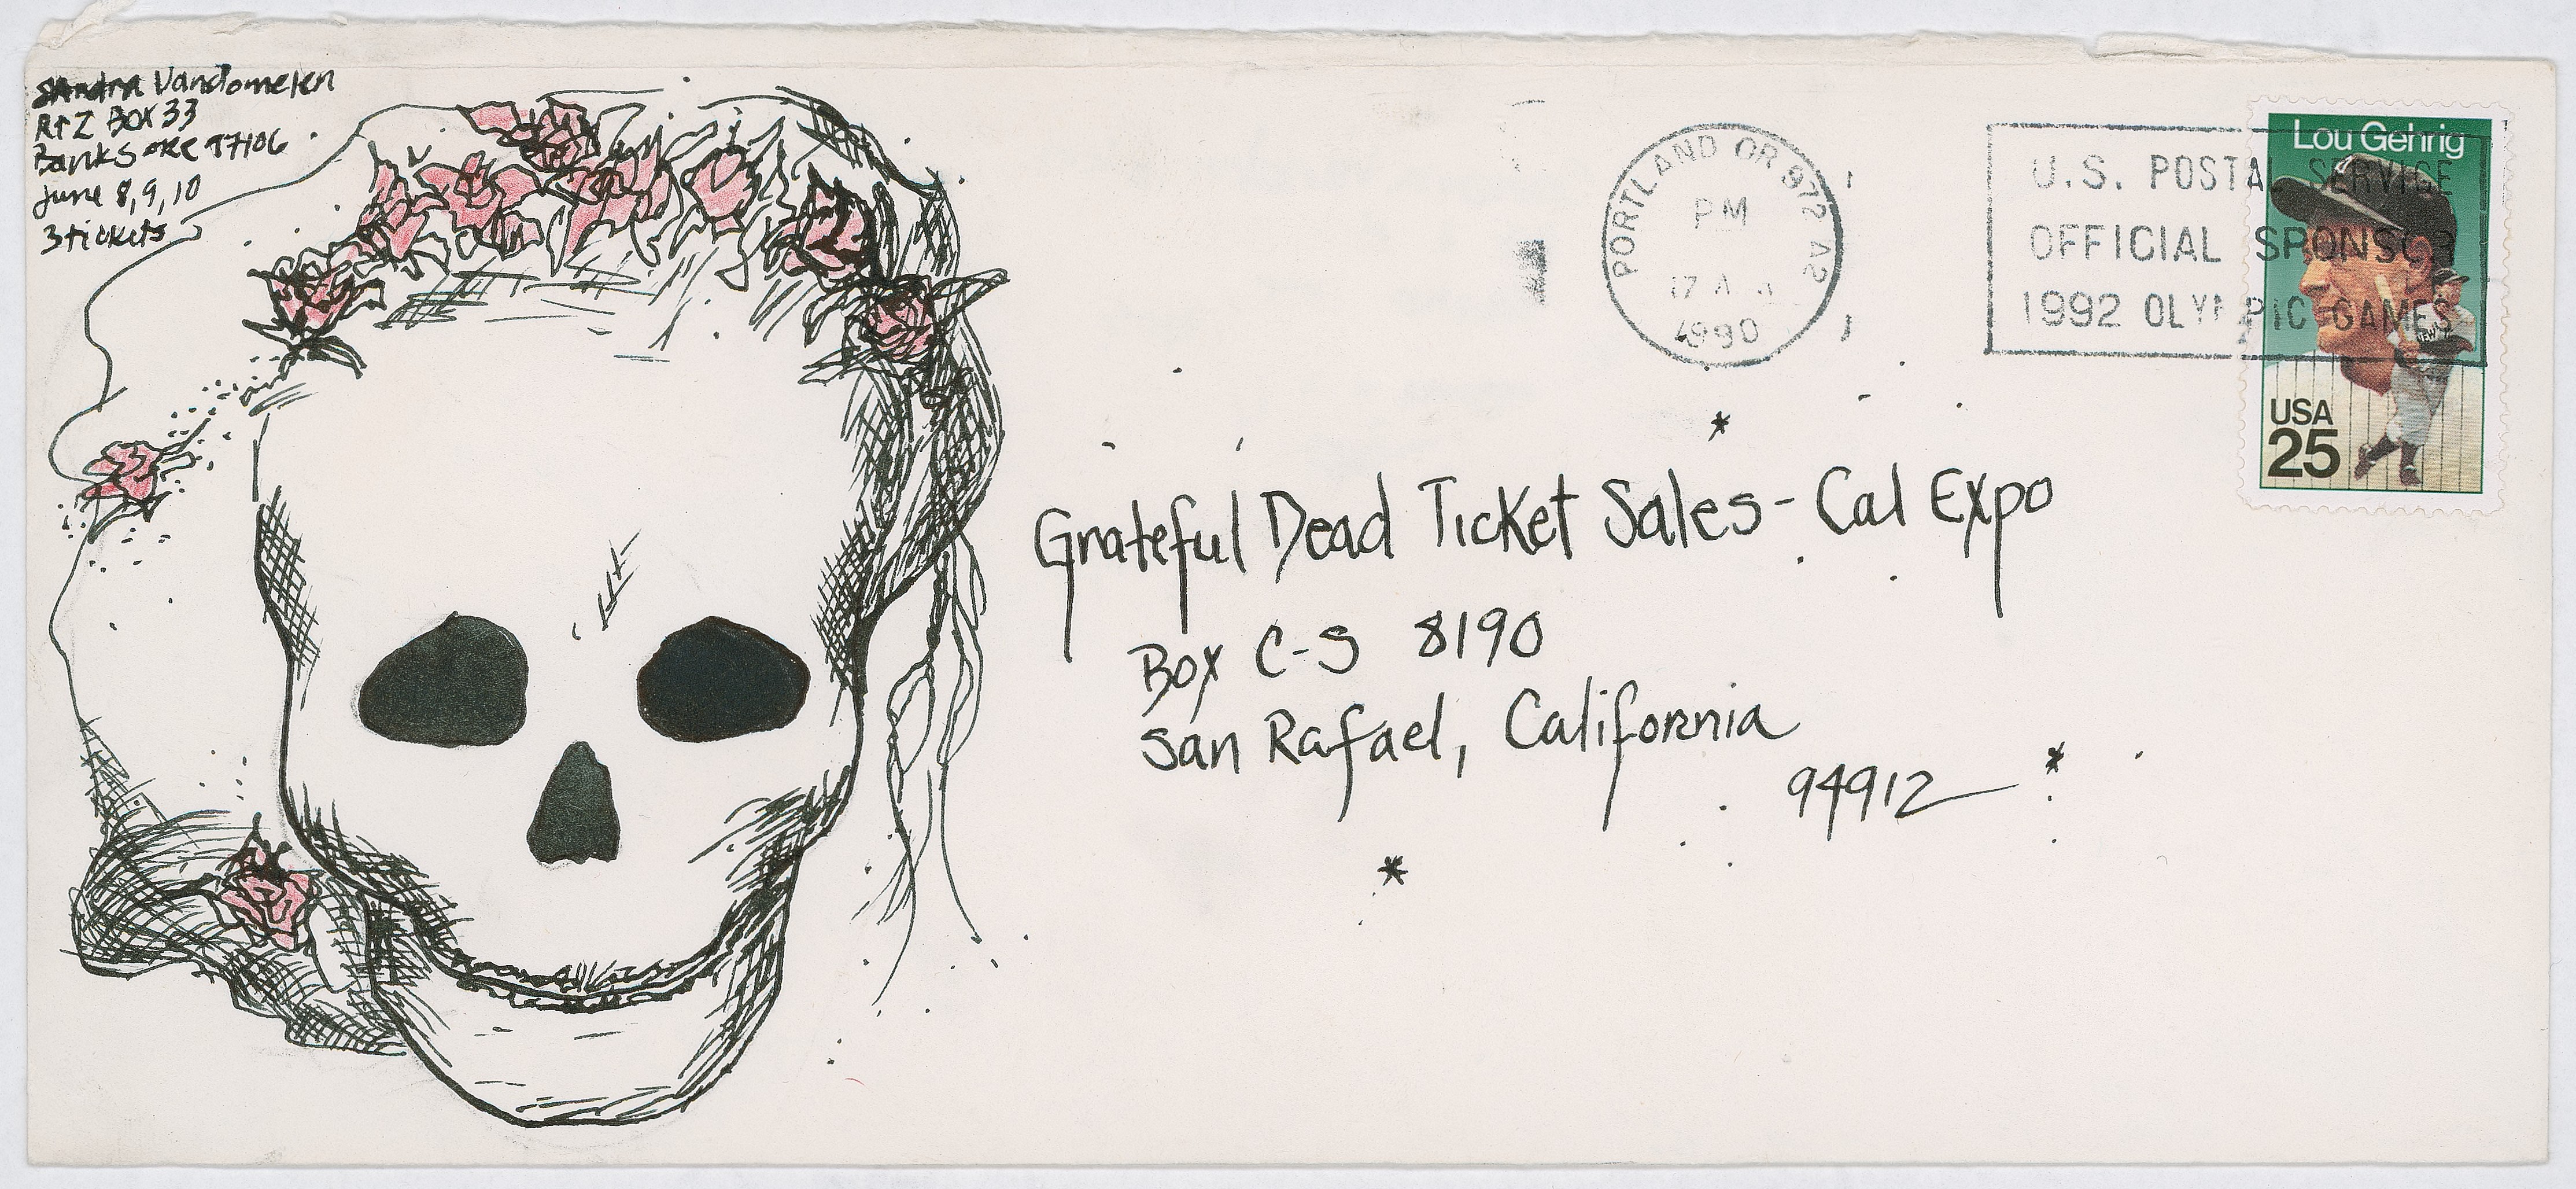 Sandra Vandomelen
Rt 2 Box 33
Banks ORE 97106
June 8, 9, 10
3 tickets
PORTLAND OR 972 A2
PM
17
1990
U.S. POSTAL SERVICE
OFFICIAL SPONSOR
1992 OLYMPIC GAMES
Lou Gehrig
USA
25
Grateful Dead Ticket Sales - Cal Expo
Box C-S 8190
San Rafael, California
94912